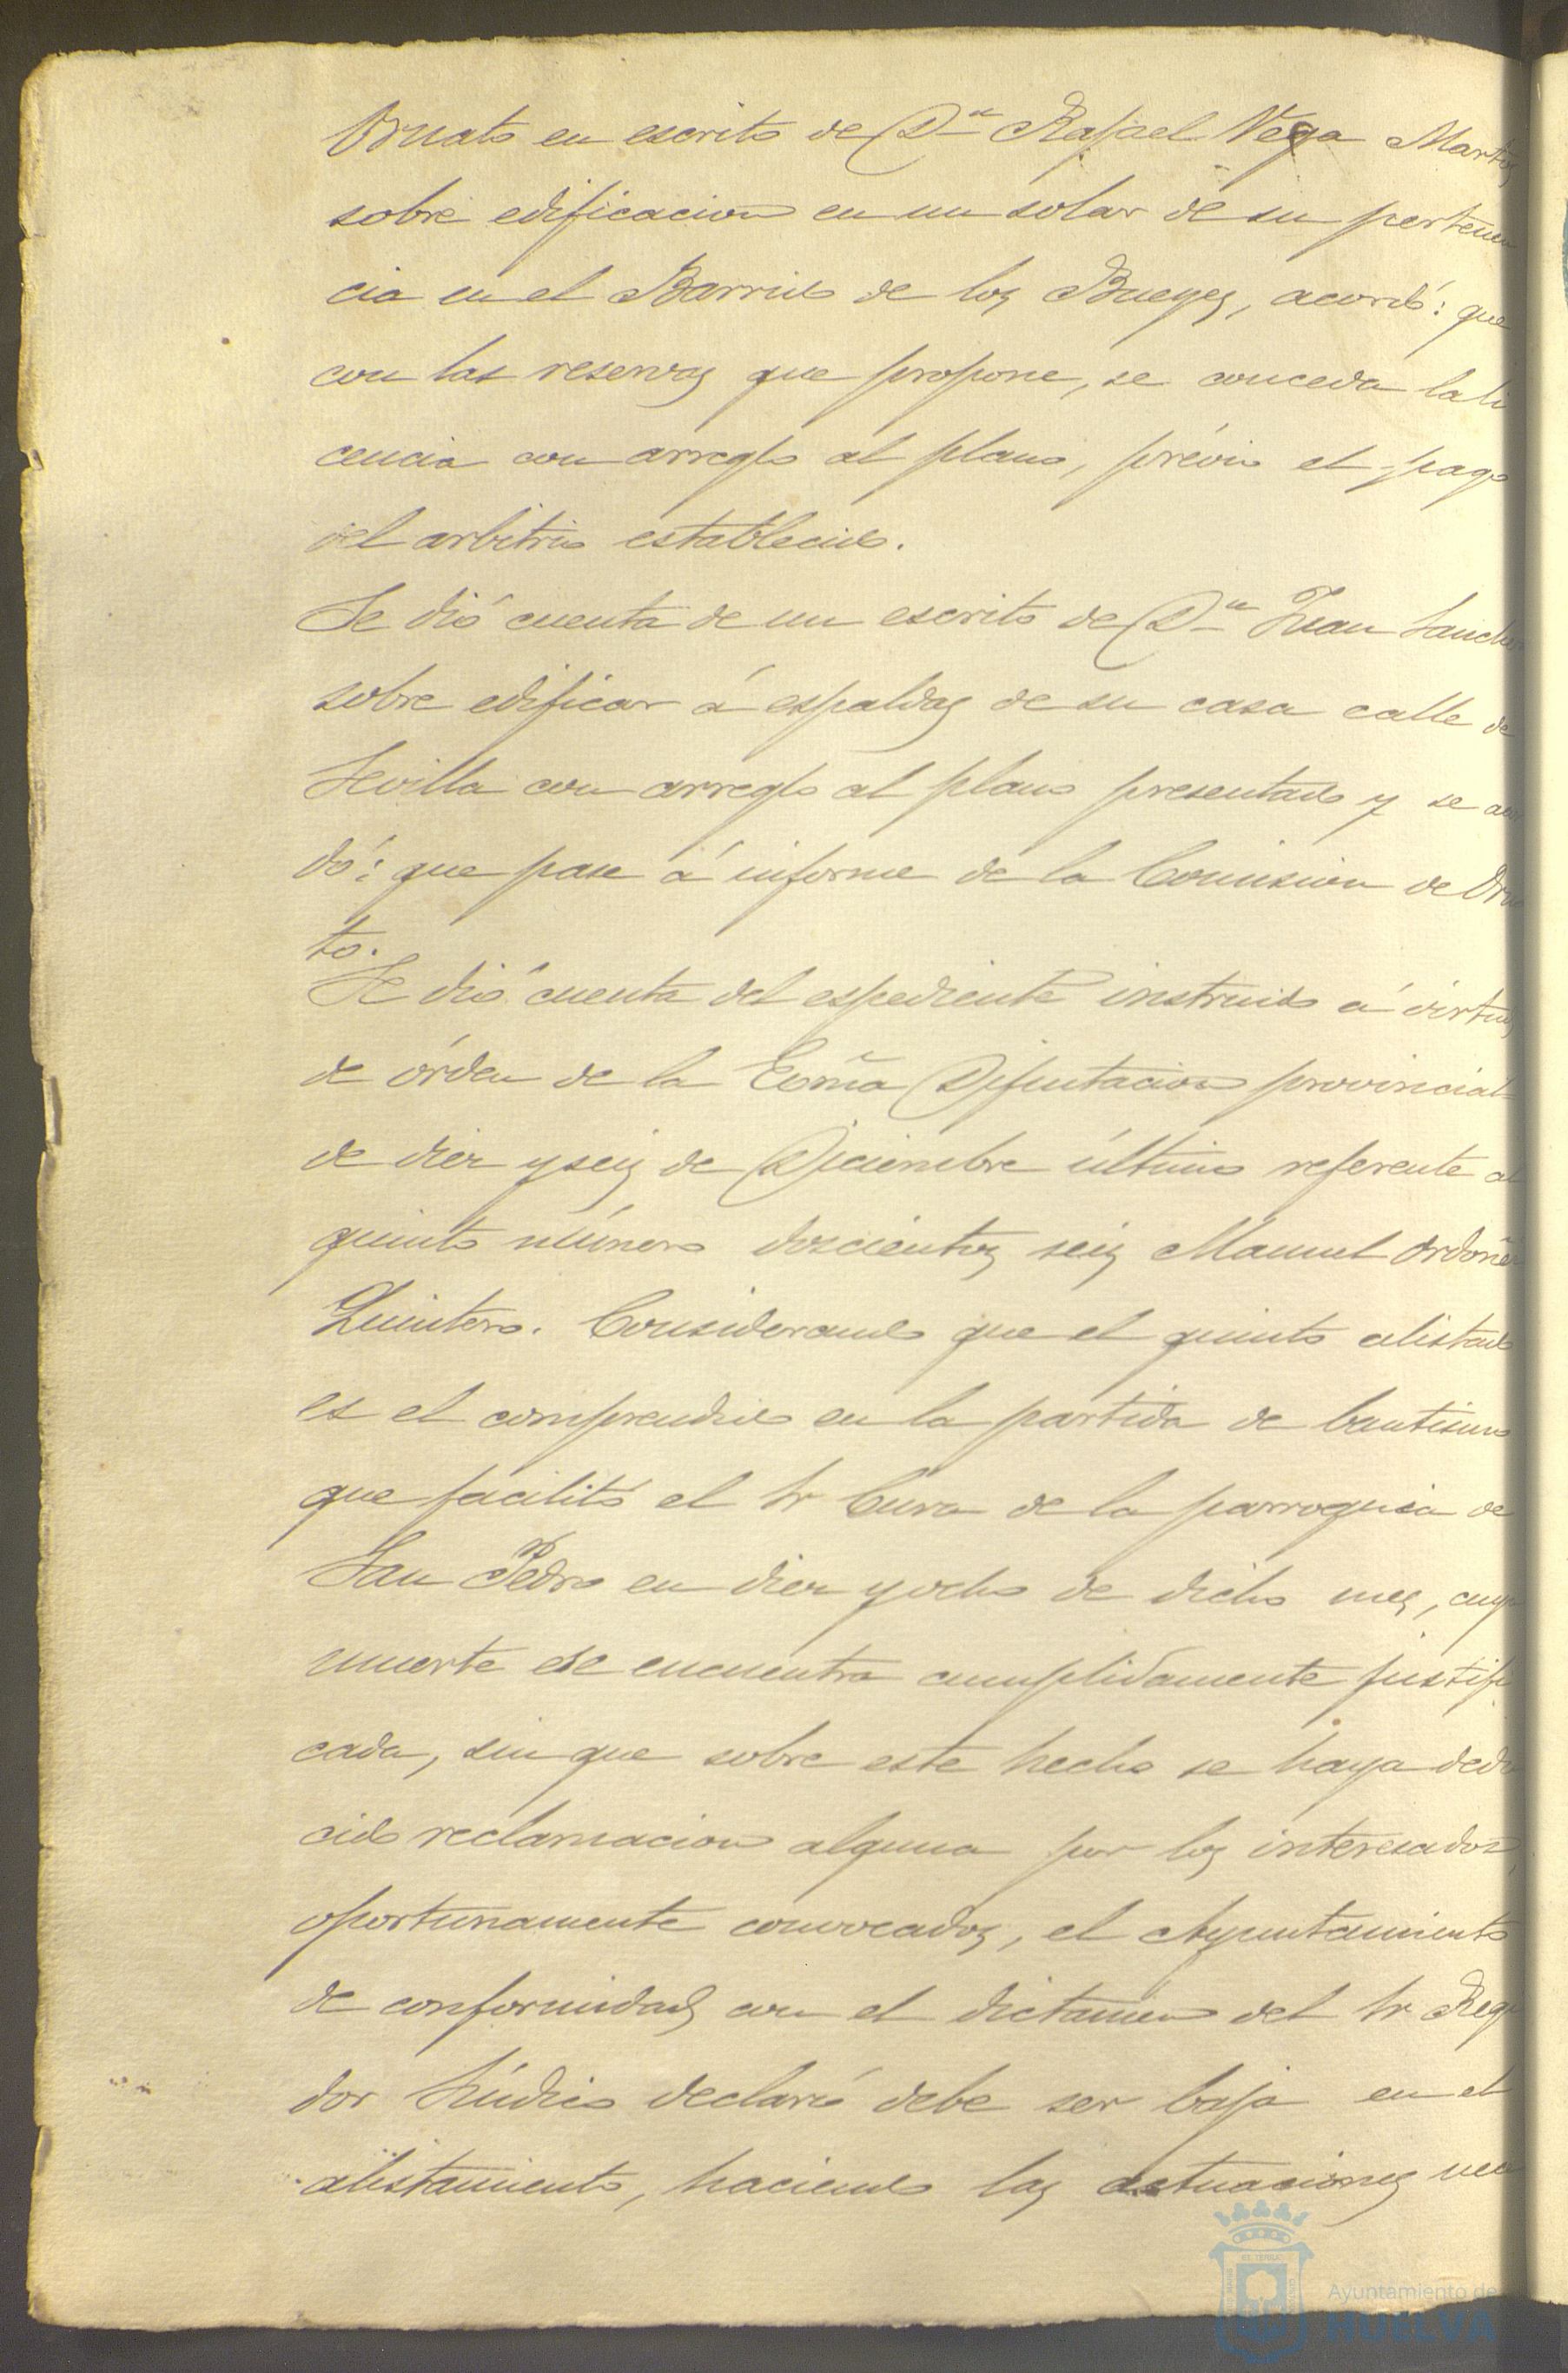 Ornato en escrito de Dn Rafael Vega Martin
sobre edificacion en un solar de su pertenen
cia en el Barrio de los Bueyes, acordó: que
con las reservas que propone, se conceda la li
cencia con arreglo al plano, prévio el pago
del arbitrio establecido.
Se dió cuenta de un escrito de Dn Juan Sanchez
sobre edificar á espaldas de su casa calle de
Sevilla con arreglo al plano presentado y se acor
dó: que pase á informe de la Comision de Orna
to.
Se dió cuenta del espediente instruido á virtud
de órden de la Exma Diputacion provincial
de diez y seis de Diciembre último referente al
quinto número doscientos seis Manuel Ordoñez
Quintero. Considerando que el quinto alistado
es el comprendido en la partida de bautismo
que facilitó el Sr Cura de la parroquia de
San Pedro en diez y ocho de dicho mes, cuya
muerte se encuentra cumplidamente justifi
cada, sin que sobre este hecho se haya dedu
cido reclamacion alguna por los interesados,
oportunamente convocados, el Ayuntamiento
de conformidad con el dictamen del Sr Regi
dor Síndico declaró debe ser baja en el
alistamiento, haciendo las actuaciones nece
Ayuntamiento de
HUELVA